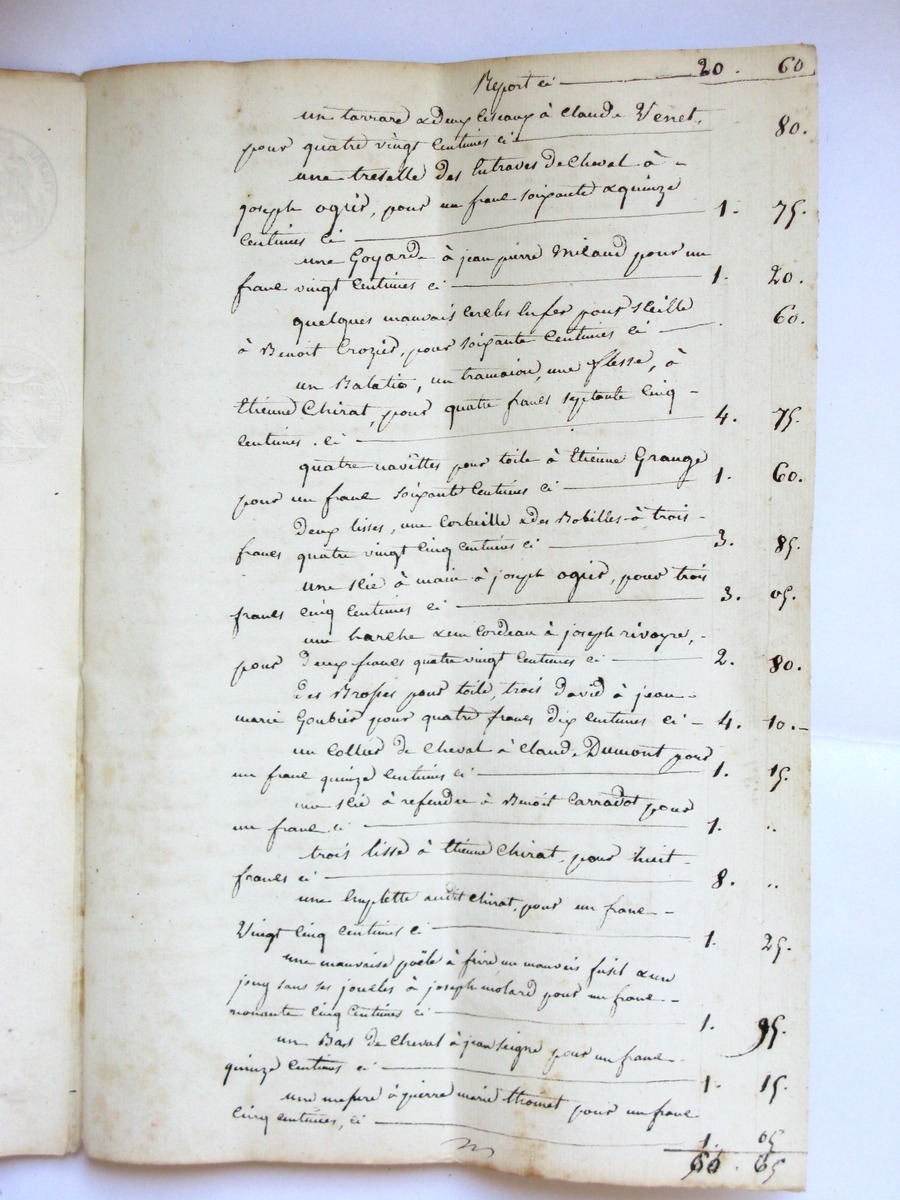 Report ci 20. 60
un tarrare & deux ciseaux à Claude Venet,
pour quatre vingt centimes ci 80.
une treselle des entraves de cheval à
joseph ogier, pour un franc soixante & quinze
centimes ci 1. 75.
une Goyarde à jean pierre Milaud pour un
franc vingt centimes ci 1. 20.
quelques mauvais cercles en fer pour seille
à Benoit Crozier, pour soixante centimes ci 60.
un Balatio, un tramaiou, une flesse, à
Etienne Chirat, pour quatre francs septante cinq
centimes. ci 4. 75.
quatre navittes pour toile à Etienne Grange
pour un franc soixante centimes ci 1. 60.
deux lisses, une Corbeille & des Bobilles à trois
francs quatre vingt cinq centimes ci 3. 85.
une scie à main à joseph ogier, pour trois
francs cinq centimes ci 3. 05.
une harche & un Cordeau à joseph rivoyre,
pour deux francs quatre vingt centimes ci 2. 80.
des Brosses pour toile, trois david à jean
marie Goubier pour quatre francs dix centimes ci 4. 10.
un Collier de cheval à Claude Dumont pour
un franc quinze centimes ci 1. 15.
une scie à refendre à Benoit Carradot pour
un franc ci 1. ..
trois lisse à Etienne Chirat, pour huit
francs ci 8. ..
une Emplette audit Chirat, pour un franc
Vingt cinq centimes ci 1. 25.
une mauvaise poële à frire un mauvais fusil & un
joug sans ses joucles à joseph molard pour un franc
nonante cinq centimes ci 1. 95.
un Bast de cheval à jean Seigne pour un franc
quinze centimes ci 1. 15.
une mesure à pierre marie thomet pour un franc
cinq centimes, ci 1. 05
65